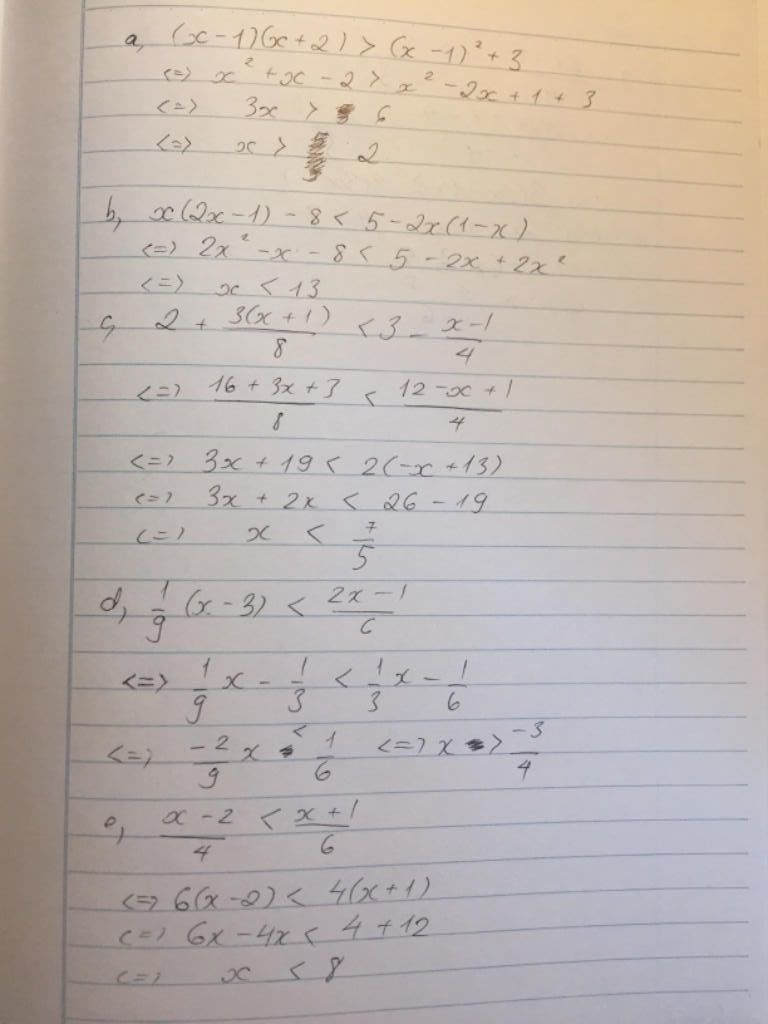 a, (x-1)(x+2) > (x-1)² + 3
<=> x² + x - 2 > x² - 2x + 1 + 3
<=> 3x > 6
<=> x > 2
b, x(2x-1) - 8 < 5 - 2x(1-x)
<=> 2x² - x - 8 < 5 - 2x + 2x²
<=> x < 13
c, 2 + 3(x+1)/8 < 3 - x-1/4
<=> 16 + 3x + 3/8 < 12 - x + 1/4
<=> 3x + 19 < 2(-x + 13)
<=> 3x + 2x < 26 - 19
<=> x < 7/5
d, 1/9 (x - 3) < 2x - 1/6
<=> 1/9 x - 1/3 < 1/3 x - 1/6
<=> -2/9 x < 1/6 <=> x > -3/4
e, x - 2/4 < x + 1/6
<=> 6(x-2) < 4(x+1)
<=> 6x - 4x < 4 + 12
<=> x < 8